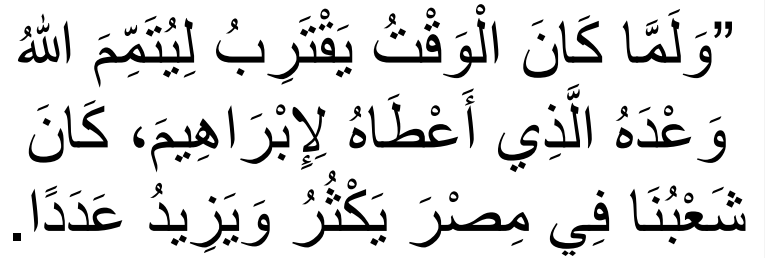 ”وَلَمَّا كَانَ الْوَقْتُ يَقْتَرِبُ لِيُتَمِّمَ اللهُ
وَعْدَهُ الَّذِي أَعْطَاهُ لِإِبْرَاهِيمَ، كَانَ
شَعْبُنَا فِي مِصْرَ يَكْثُرُ وَيَزِيدُ عَدَدًا.